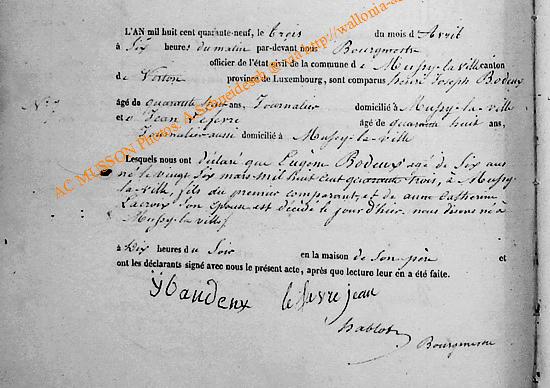 L'AN mil huit cent quarante-neuf, le trois du mois d'Avril
à Six heures du matin par-devant nous Bourgmestre
officier de l'état civil de la commune de Mussy-la-ville canton
de Virton province de Luxembourg, sont comparus henri Joseph Bodeux
N° 7
âgé de quarante huit ans, Journalier domicilié à Mussy-la-ville
et Jean Lefevre âgé de quarante huit ans,
Journalier aussi domicilié à Mussy-la-ville
Lesquels nous ont déclaré que Eugène Bodeux agé de Six ans
né le vingt Six mars mil huit cent quarante trois, à Mussy-
la-ville, fils du premier comparant, et de Catherine
Lacroix son épouse est décédé le jour d'hier, nous disons né à
Mussy-la-ville
à Dix heures du Soir en la maison de Son père et
ont les déclarants signé avec nous le présent acte, après que lecture leur en a été faite.
lefevre jean
Bourgmestre
AC MUSSON Photos. A.Schneidesch @ via http://wallonia-a